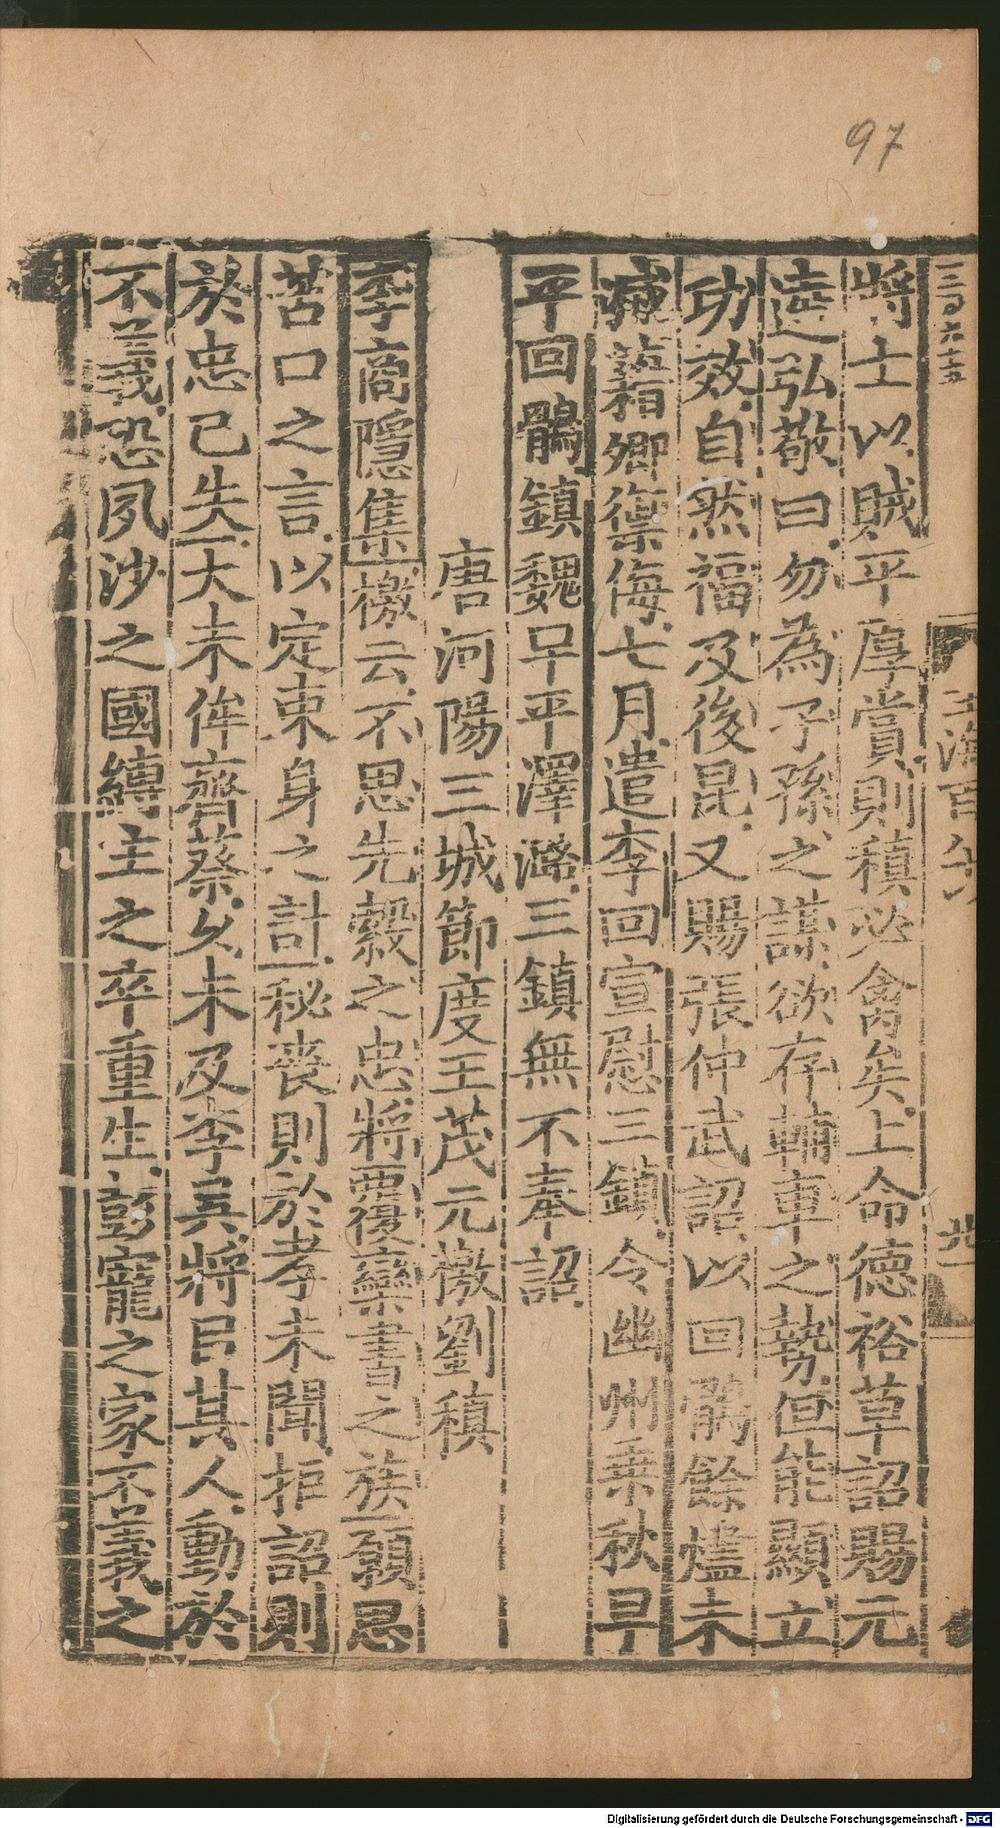 97
三百六十五
玉海百八六
將士以賊平厚賞則稹必禽矣上命德裕草詔賜元
逵弘敬曰勿為子孫之謀欲存輔車之勢但能顯立
功效自然福及後昆又賜張仲武詔以回鶻餘燼未
滅藉卿禦侮七月遣李回宣慰三鎮令幽州乗秋早
平回鶻鎮魏早平澤潞三鎮無不奉詔
唐河陽三城節度王茂元檄劉稹
李商隱集檄云不思先縠之忠將覆欒書之族願思
苦口之言以定束身之計秘喪則於孝未聞拒詔則
於忠已失大未侔齊蔡久未及李吳將以其人動於
不義恐夙沙之國縛主之卒重生彭寵之家不義之
Digitalisierung gefördert durch die Deutsche Forschungsgemeinschaft - DFG